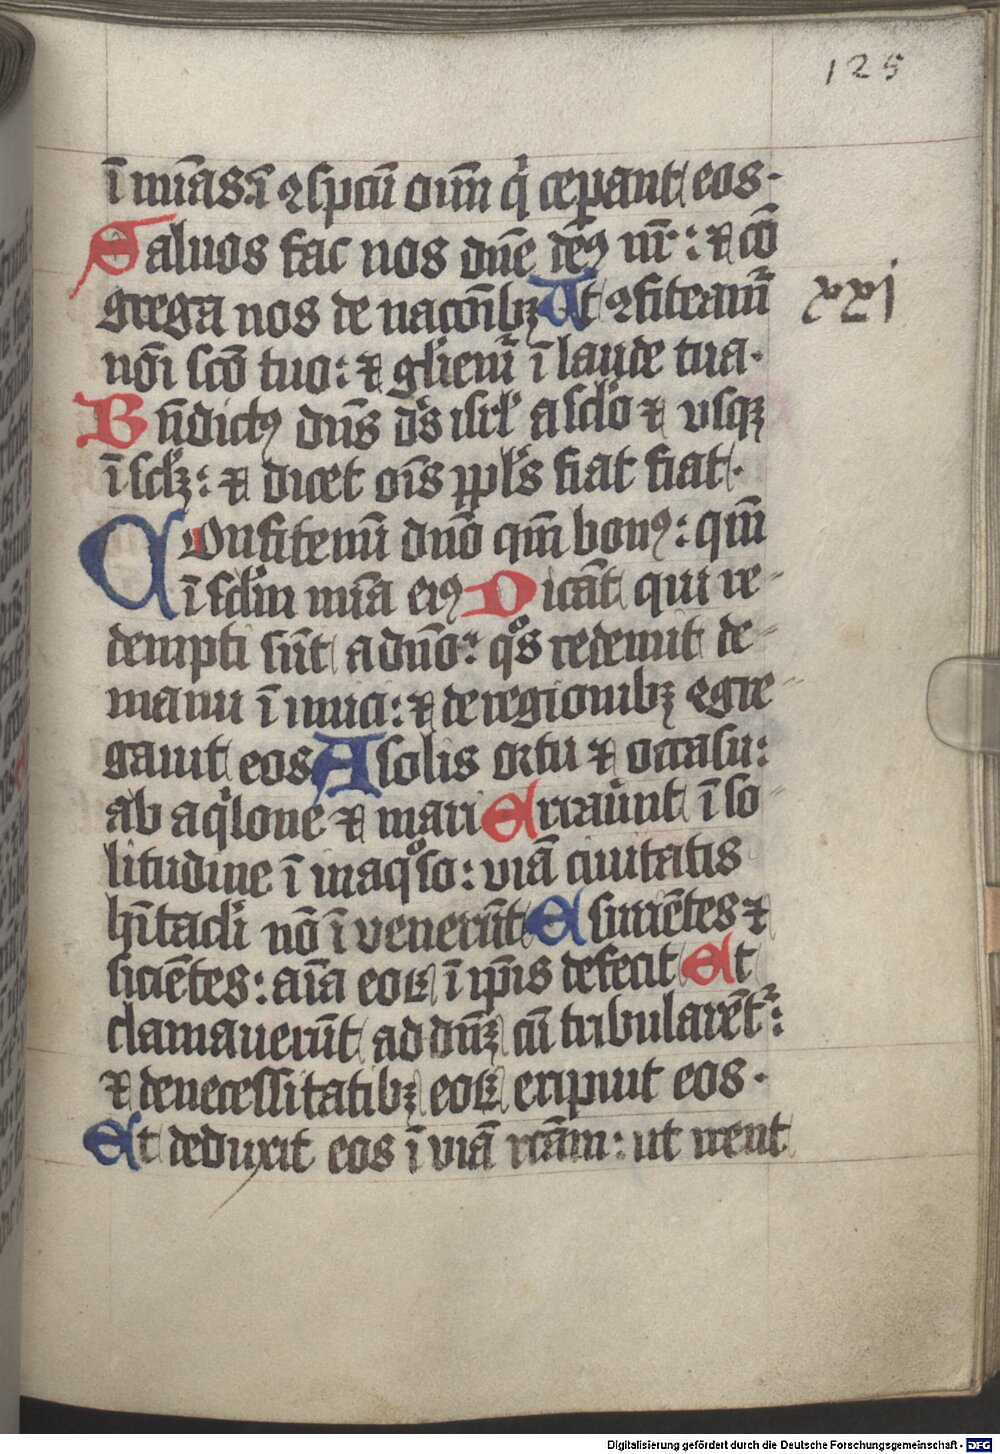 125
ī mīas: ī ꝯspcū oīm q̇ ceperant eos·
Saluos fac nos dn̄e deꝰ nr̄: ⁊ cō
grega nos de nacōibꝫ At ꝯfiteamr̄
xxi
nōi scō tuo: ⁊ gl̄iemr̄ ī laude tua·
Bn̄dictꝰ dn̄s ds̄ isrl̄ a scl̄o ⁊ vsqꝫ
ī sclꝫ: ⁊ dicet oīs ppl̄s fiat fiat·
Confitemī dn̄o qm̄ bonꝰ: qm̄
ī scl̄m mīa eiꝰ Dicāt qui re-
dempti sūt a dn̄o: qͦs redemit de-
manu īimici: ⁊ de regionibꝫ ꝯgre-
gauit eos A solis ortu ⁊ occasu:
ab aq̇lone ⁊ mari Erraūnt ī so-
litudine ī inaqͦso: viā ciuitatis
hītacl̄i nō īvenerūt Esuriētes ⁊
siciētes: aīa eoꝝ ī ip̄is defecit Et
clamauerūt ad dn̄ꝫ cū tribularēt᷑:
⁊ de necessitatibꝫ eoꝝ eripuit eos·
Et deduxit eos ī viā rcām: ut irent
Digitalisierung gefördert durch die Deutsche Forschungsgemeinschaft - DFG